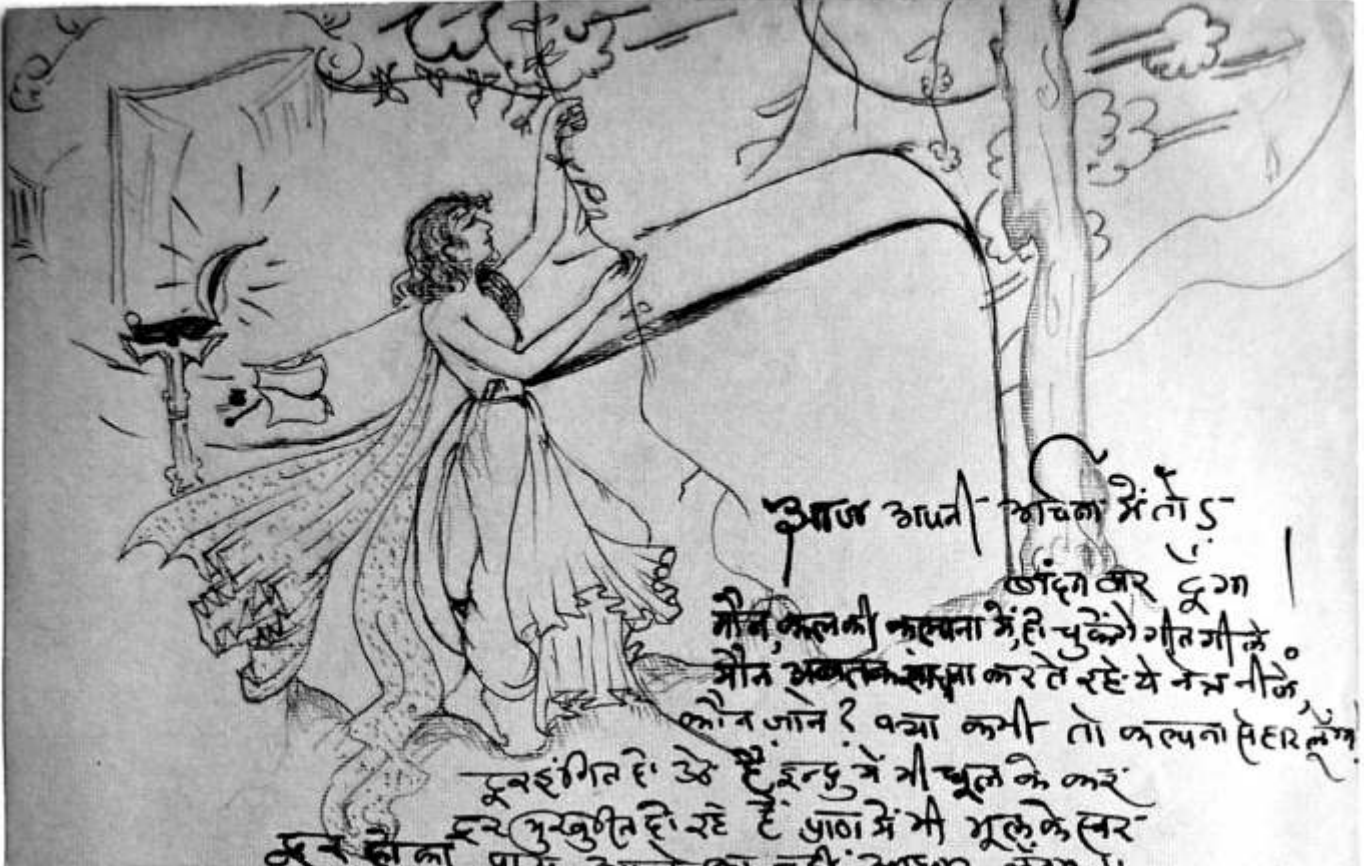 आज अपनी अर्चना मैं तोड़
बंदन कर दूंगा
मौन, कल की कल्पना में, हो चुकेंगे गीत गीले
मौन अबतक साधना करते रहे ये नेत्र नीले,
कौन जाने? क्या कभी तो कल्पना से हार लूँगा
दूर इंगित हो उठे हैं, इन्दु में भी धूल के कई
दूर मुखरित हो रहे हैं प्राण में भी भूल के स्वर
दूर